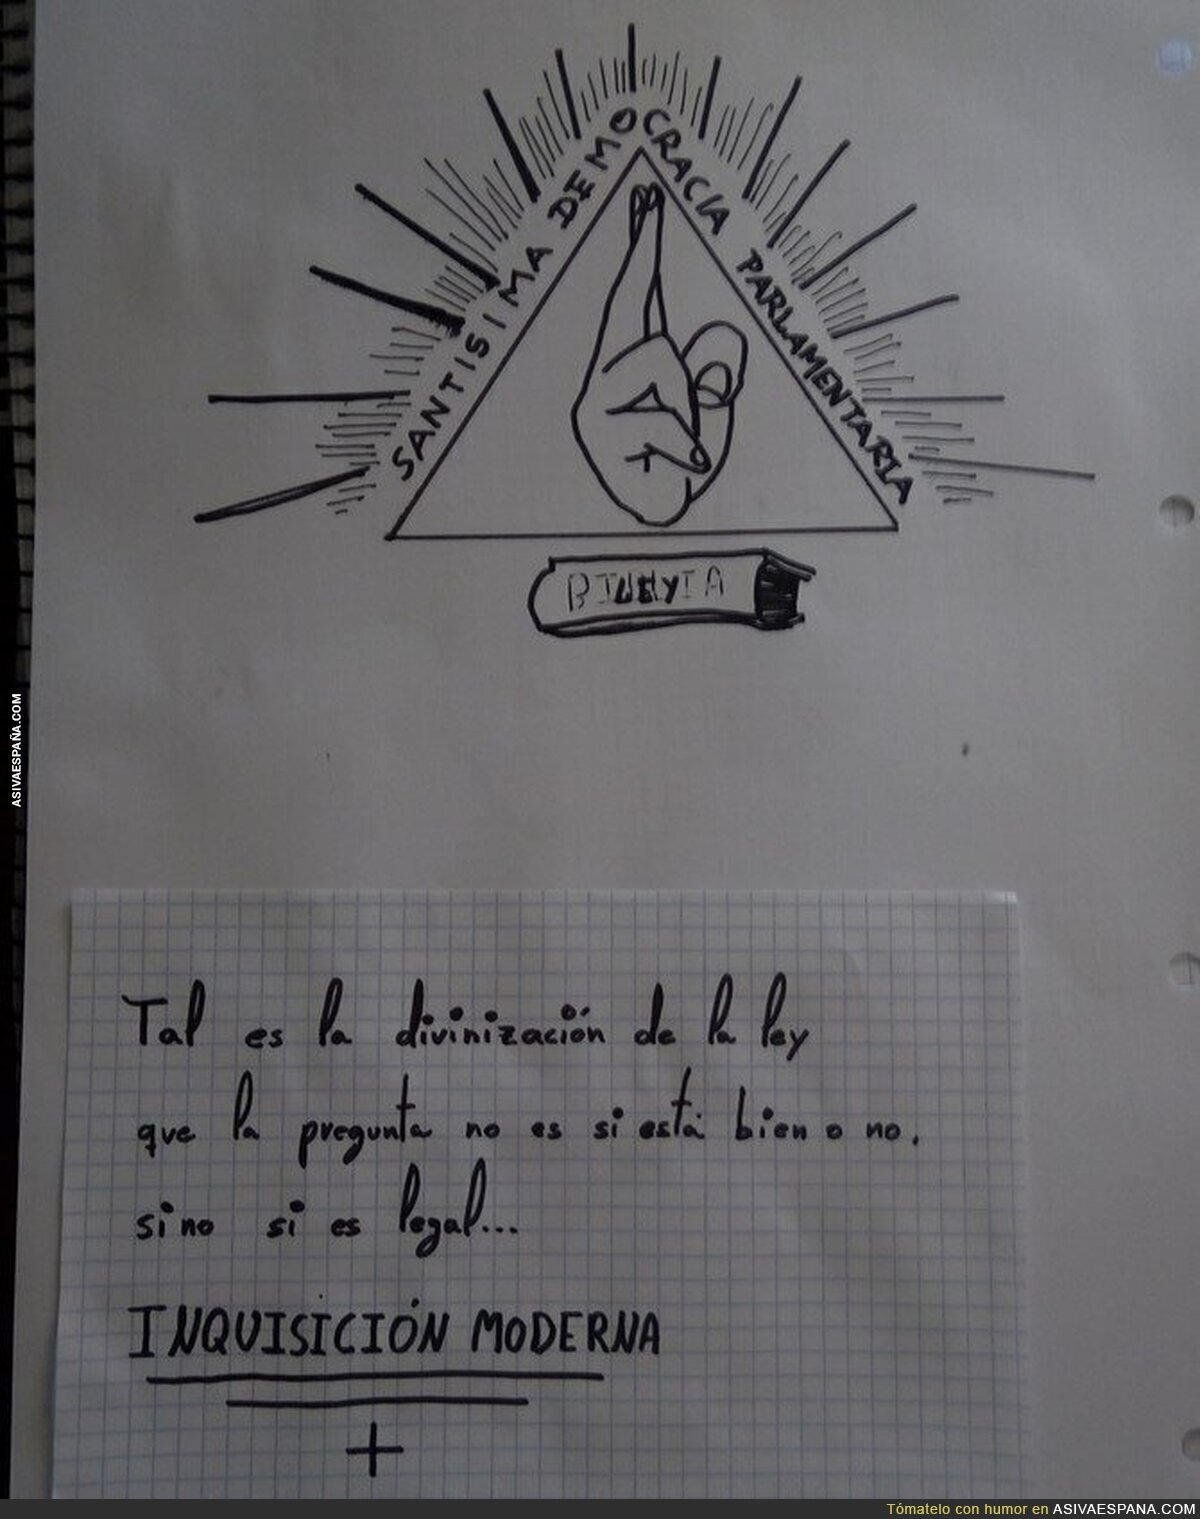 SANTISIMA DEMOCRACIA PARLAMENTARIA
Tal es la divinización de la ley
que la pregunta no es si está bien o no,
sino si es legal...
INQUISICIÓN MODERNA
ASIVAESPAÑA.COM
Tómatelo con humor en ASIVAESPANA.COM